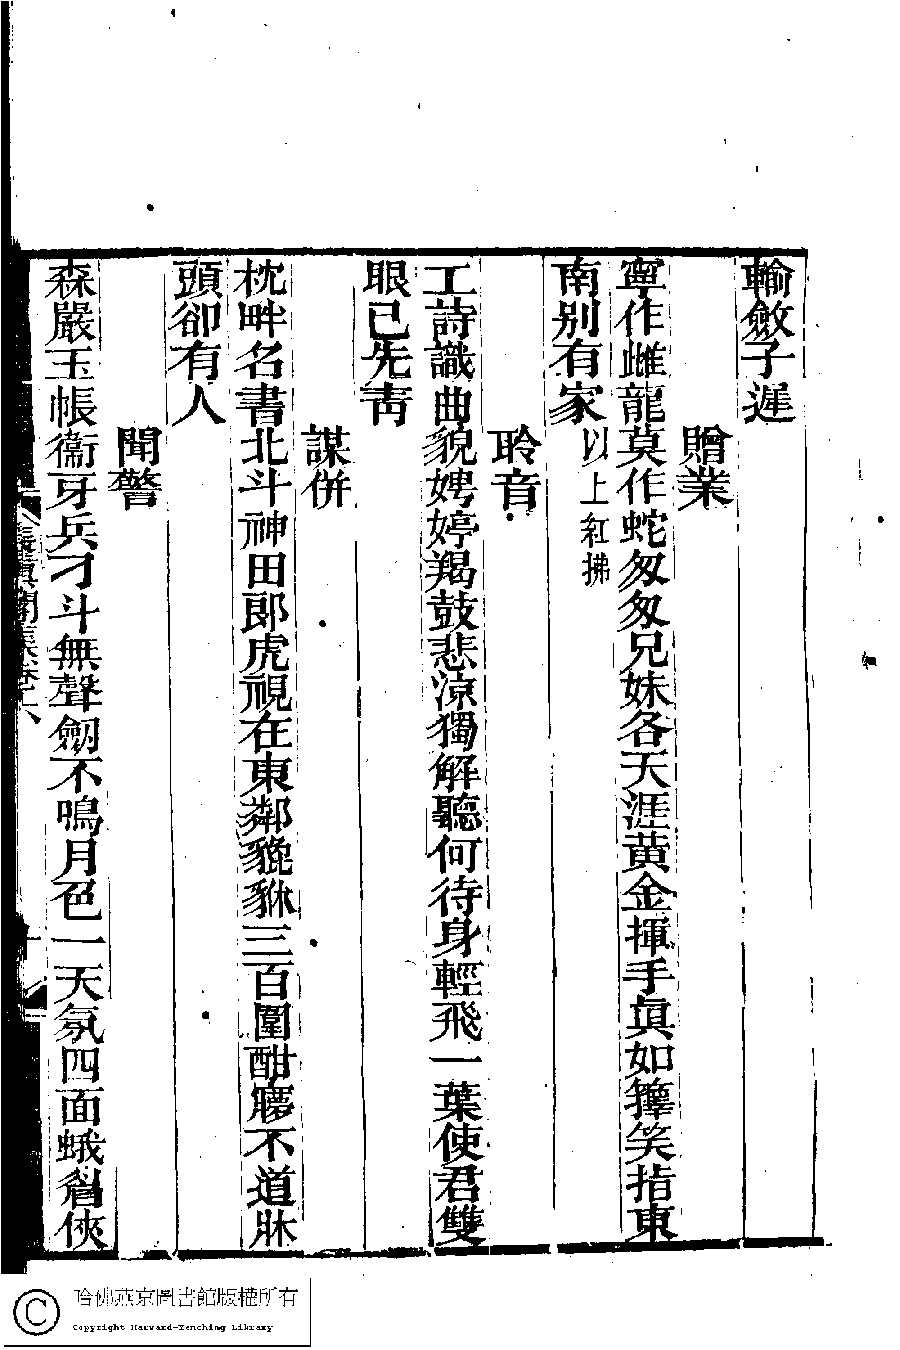 輸斂子遲
贈業
寧作雌龍莫作蛇匆匆兄妹各天涯黃金揮手眞如籜笑指東
南別有家以上紅拂
聆音
工詩識曲貌娉婷羯鼓悲涼獨解聽何待身輕飛一葉使君雙
眼已先靑
謀倂
枕畔名書北斗神田郎虎視在東鄰貔貅三百圍酣寢不道牀
頭卻有人
聞警
森嚴玉帳衞牙兵刁斗無聲劒不鳴月色一天氛四面蛾眉俠
哈佛燕京圖書館版權所有
Copyright Harvard-Yenching Library